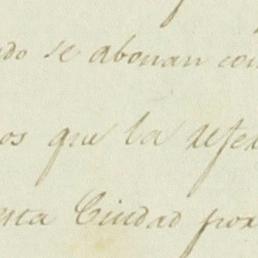 do se abonan con
os que la refe
esta Ciudad por